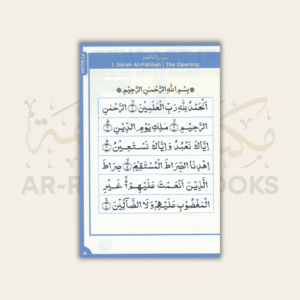 سورة الفاتحة
1. Surah Al-Fatihah : The Opening
بِسْمِ اللّٰهِ الرَّحْمٰنِ الرَّحِيْمِ
اَلْحَمْدُ لِلّٰهِ رَبِّ الْعٰلَمِيْنَ ۝ الرَّحْمٰنِ
الرَّحِيْمِ ۝ مٰلِكِ يَوْمِ الدِّيْنِ ۝
اِيَّاكَ نَعْبُدُ وَاِيَّاكَ نَسْتَعِيْنُ ۝
اِهْدِنَا الصِّرَاطَ الْمُسْتَقِيْمَ ۝ صِرَاطَ
الَّذِيْنَ اَنْعَمْتَ عَلَيْهِمْ ۝ غَيْرِ
الْمَغْضُوْبِ عَلَيْهِمْ وَلَا الضَّآلِّيْنَ ۝
AR-R
OOKS